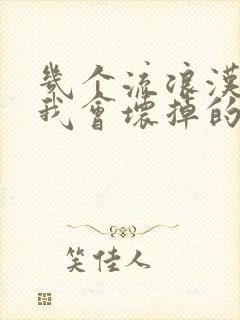 幾个流浪漢
我會壞掉的
笑佳人